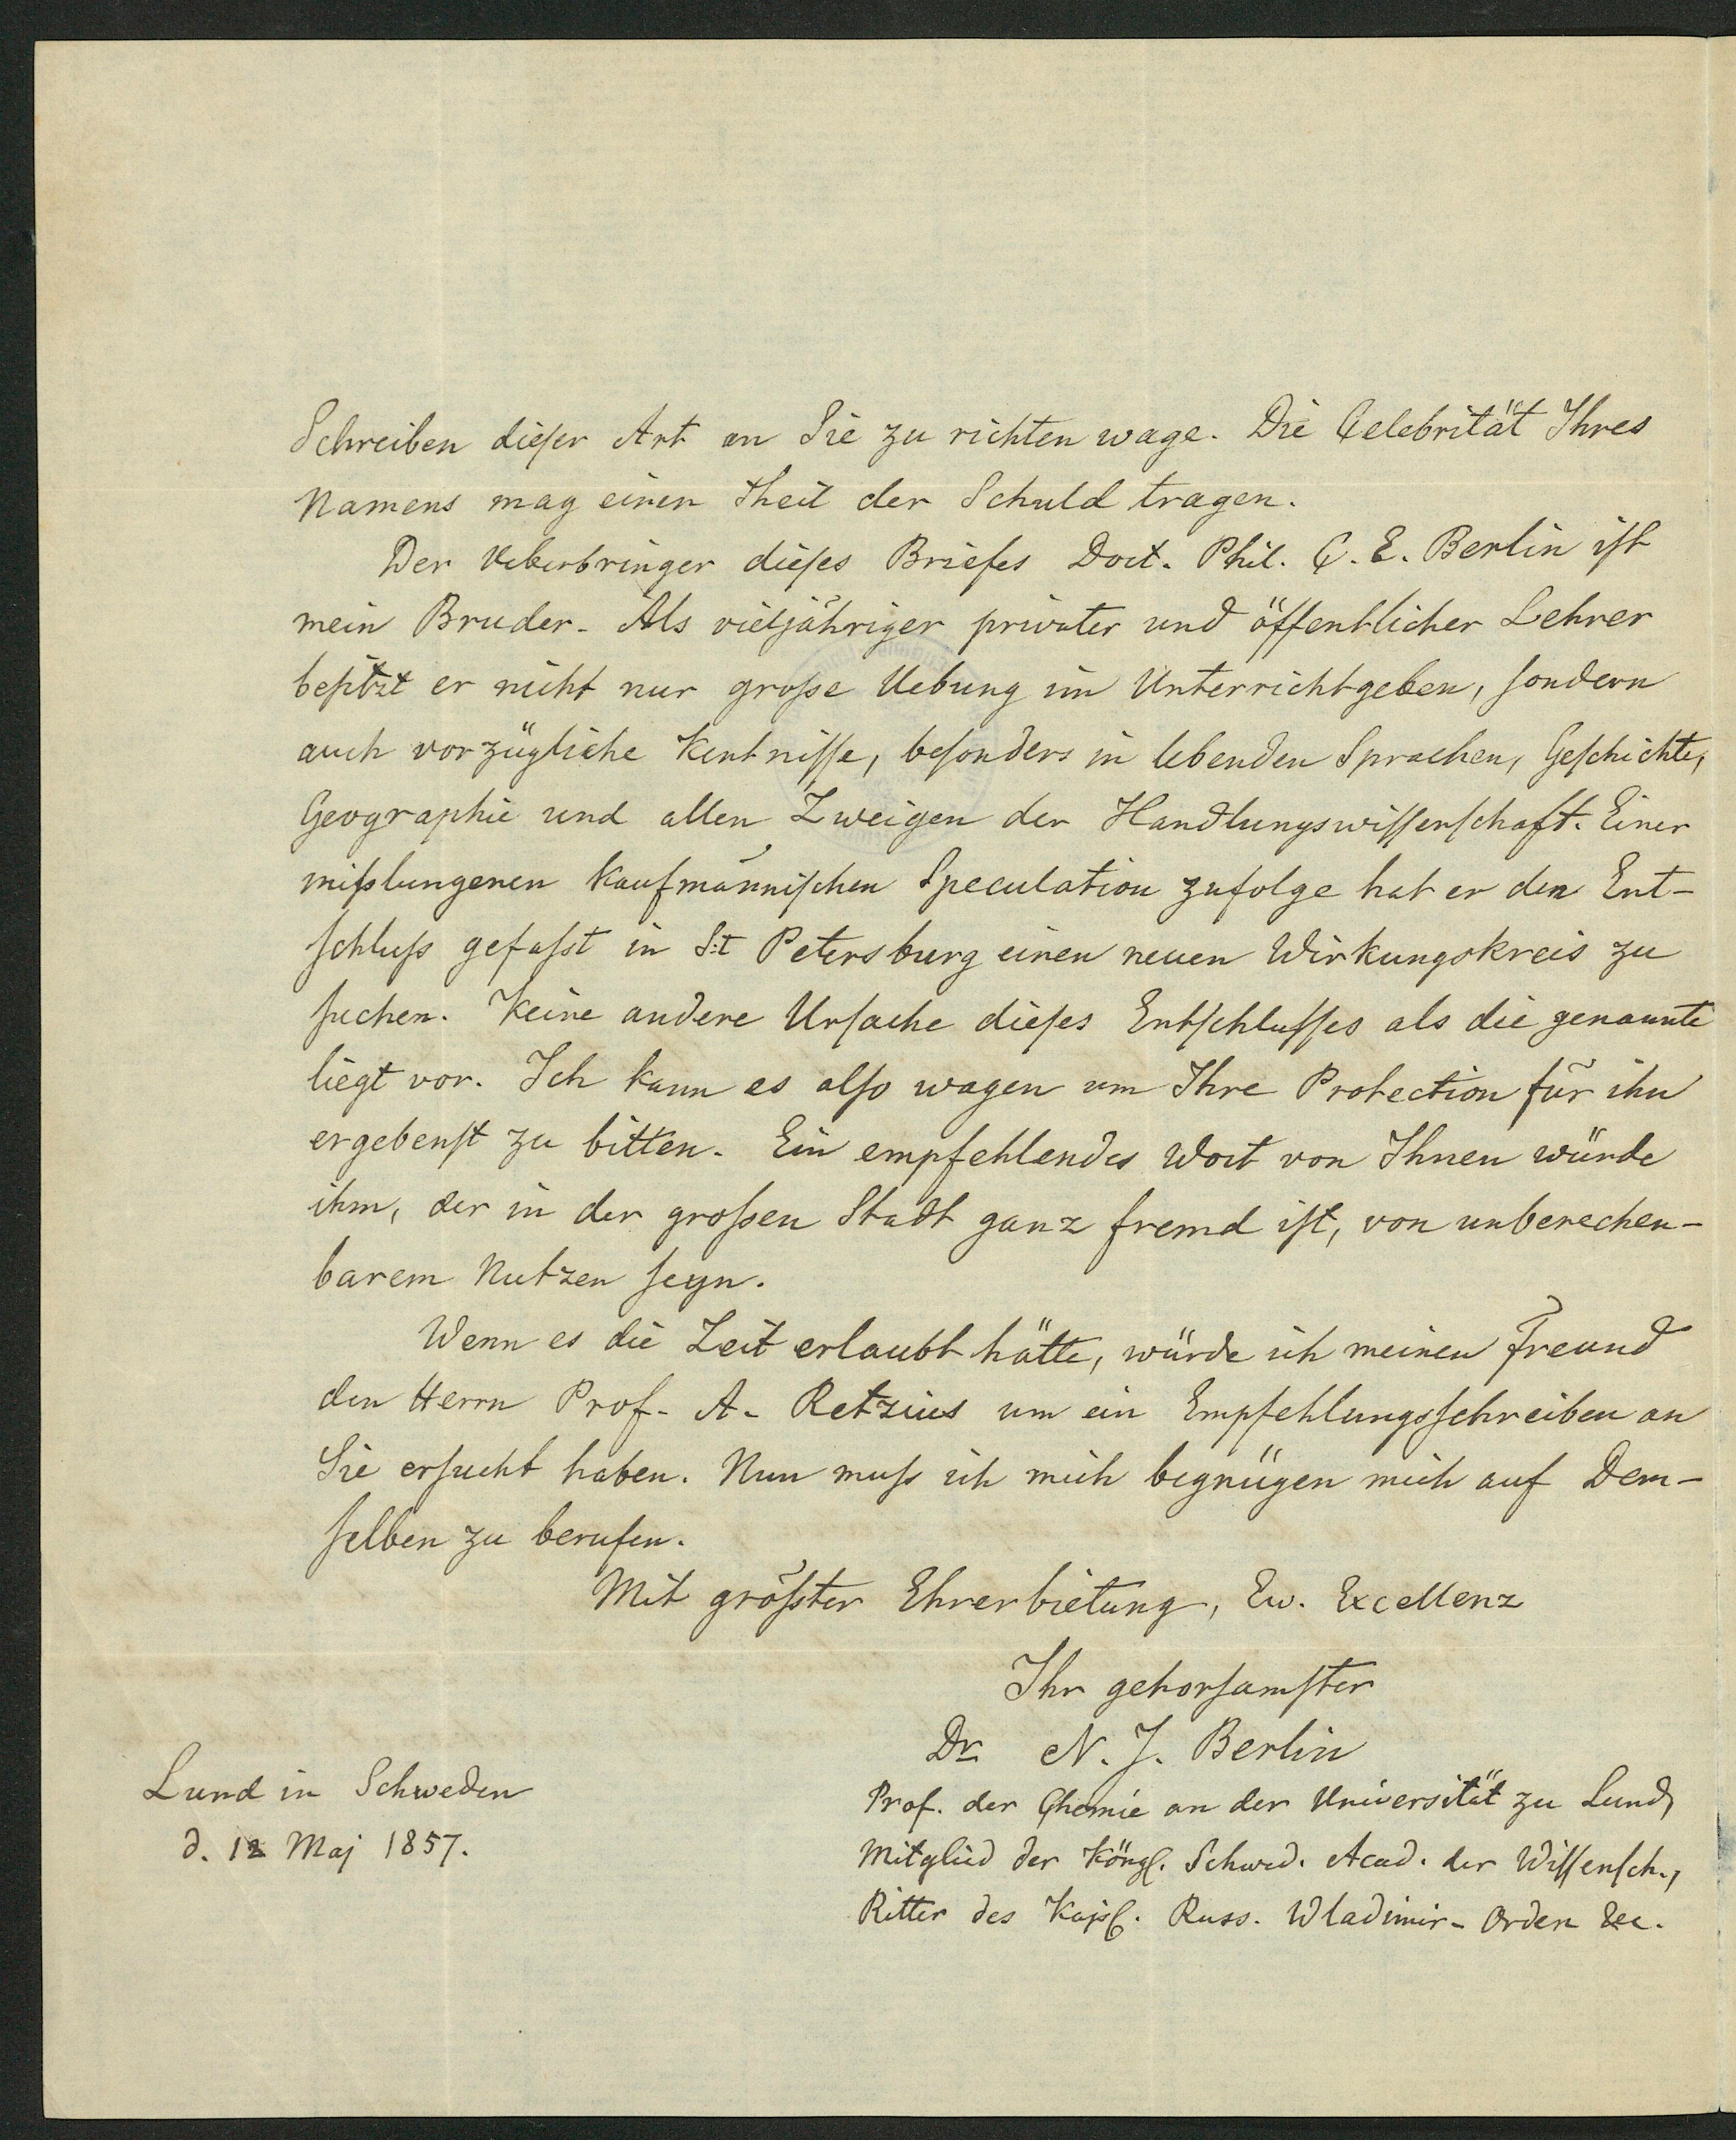 Schreiben dieſer Art an Sie zu richten wage. Die Celebrität Ihres
Namens mag einen Theil der Schuld tragen.
Der Ueberbringer dieſes Briefes Doct. Phil. C. E. Berlin iſt
mein Bruder. Als vieljähriger privater und öffentlicher Lehrer
beſitzt er nicht nur groſse Uebung im Unterrichtgeben, ſondern
auch vorzügliche Kentniſſe, beſonders in lebenden Sprachen, Geſchichte,
Geographie und allen Zweigen der Handlungswiſſenſchaft. Einer
miſslungenen kaufmänniſchen Speculation zufolge hat er den Ent-
ſchluſs gefaſst in S:t Petersburg einen neuen Wirkungskreis zu
ſuchen. Keine andere Urſache dieſes Entſchluſſes als die genannte
liegt vor. Ich kann es alſo wagen um Ihre Protection für ihn
ergebenſt zu bitten. Ein empfehlendes Wort von Ihnen würde
ihm, der in der groſsen Stadt ganz fremd iſt, von unberechen-
barem Nutzen ſeyn.
Wenn es die Zeit erlaubt hätte, würde ich meinen Freund
den Herrn Prof. A. Retzius um ein Empfehlungsſchreiben an
Sie erſucht haben. Nun muſs ich mich begnügen mich auf Dem-
ſelben zu berufen.
Mit gröſster Ehrerbietung, Ew. Excellenz
Ihr gehorſamſter
Dr N. J. Berlin
Prof. der Chemie an der Universität zu Lund,
Mitglied der Köngl. Schwed. Acad. der Wiſſenſch.,
Ritter des Kajsl. Russ. Wladimir-Orden &c.
Lund in Schweden
d. 12 Maj 1857.